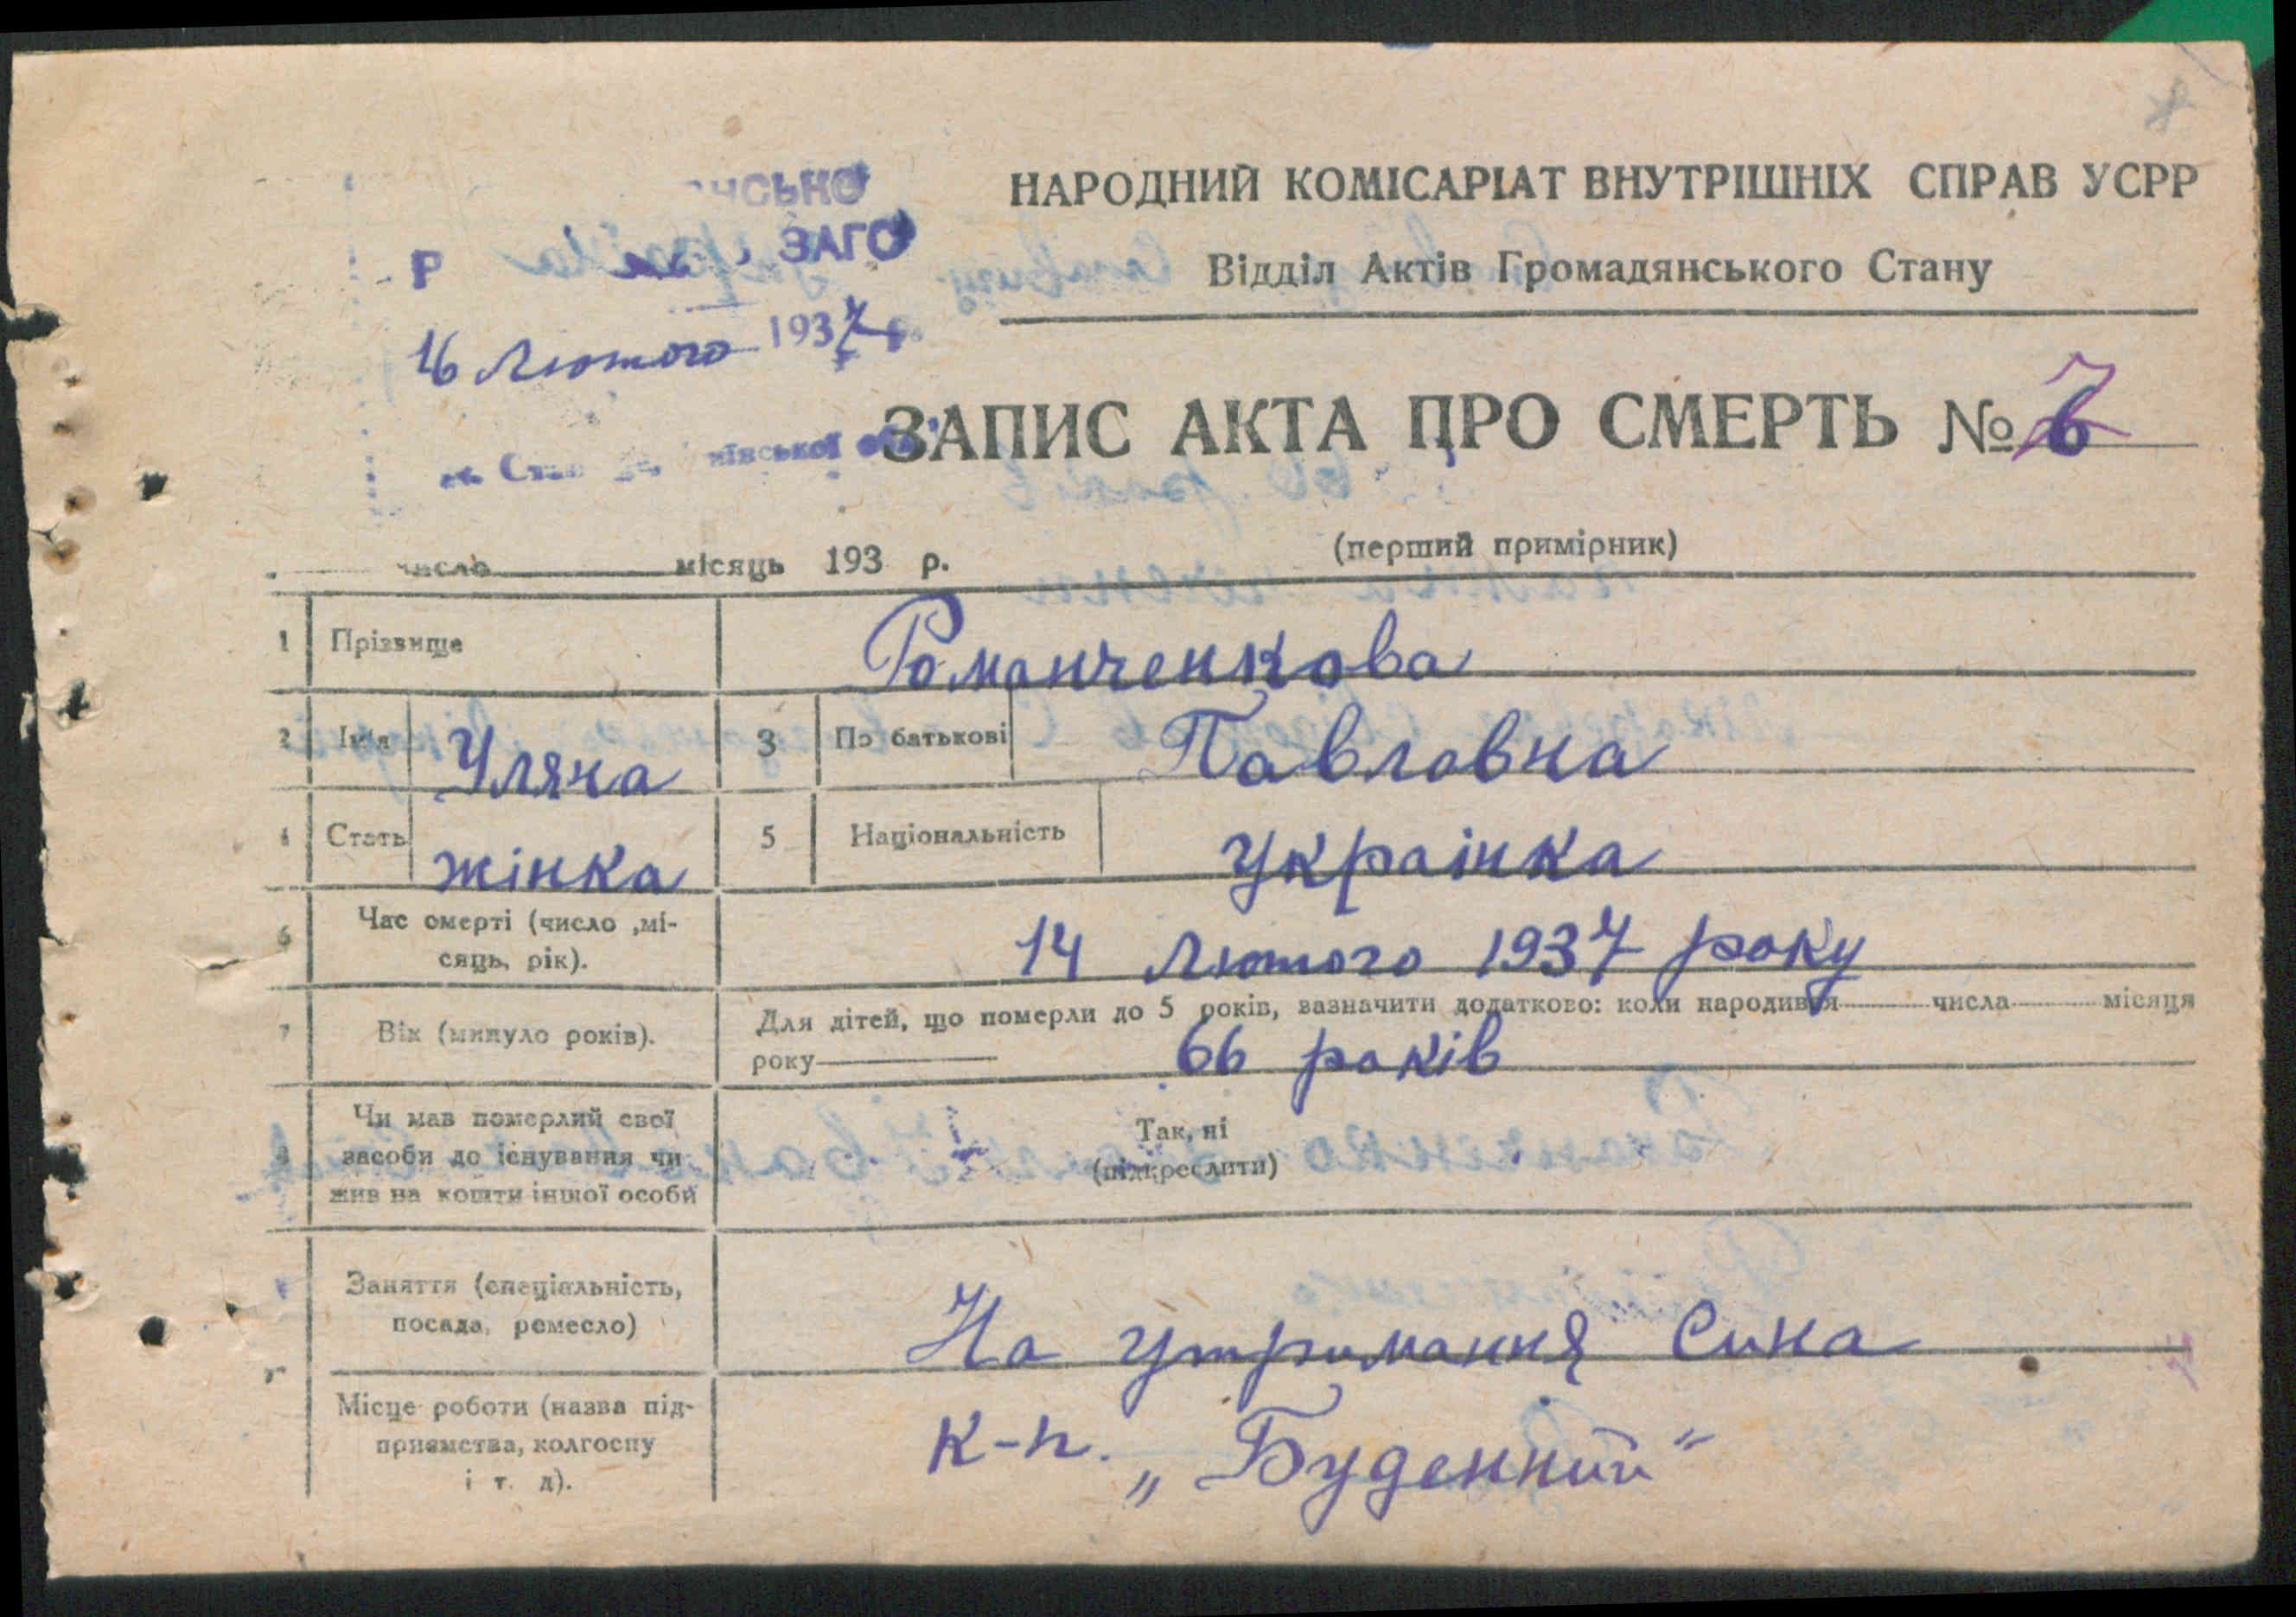 НАРОДНИЙ КОМІСАРІАТ ВНУТРІШНІХ СПРАВ УСРР
Відділ Актів Громадянського Стану
ЗАГС
Р
16 Лютого 1937 р.
ївської обл.
ЗАПИС АКТА ПРО СМЕРТЬ № 7
число місяць 193 р.
(перший примірник)
1 Прізвище Романченкова
2 Ім'я Уляна 3 По батькові Павловна
4 Стать жінка 5 Національність украінка
6 Час смерті (число ,мі-
сяць, рік). 14 Лютого 1937 року
7 Вік (минуло років). Для дітей, що померли до 5 років, зазначити додатково: коли народився числа місяця
року 66 років
Чи мав померлий свої
засоби до існування чи
жив на кошти іншої особи
Так, ні
(підкреслити)
Заняття (спеціяльність,
посада, ремесло) На утримання Сина
Місце роботи (назва під-
приємства, колгоспу
і т. д). К-п. „Буденний"